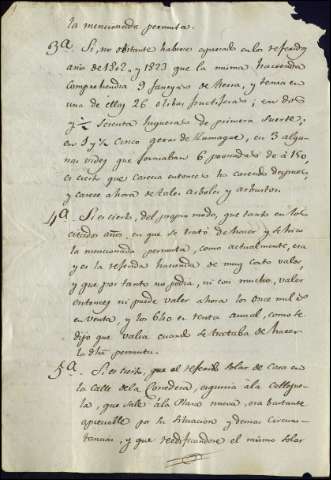 la mencionada permuta.
3ª. Si, no obstante haberse aparecido en los referidos
años de 1842, y 1823 que la misma hacienda
Comprehendia 9 fanegas de tierra, y tenia en
una de ellas 26 olibas fructiferas; en dos
y ½ sesenta higueras de primera suerte;
en 1 y ½ cinco de Zumaque, en 3 algu-
nas vides que formaban 6 peonadas de á 150
es cierto que carecia entonces, ha carecido despues,
y carece ahora de tales arboles y arbustos.
4ª. Si es cierto, del propio modo, que tanto en los
citados años, en que se trató de hacer y se hizo
la mencionada permuta, como actualmente, era
y es la referida hacienda de muy corto valor,
y que por tanto no podia, ni con mucho, valer
entonces ni puede valer ahora los once mil r.s
en venta, y los 640 en renta anual, como se
dijo que valia cuando se trataba de hacer
la dha permuta.
5ª. Si es cierto, que el referido solar de Casa en
la Calle de la Corredera, esquina á la Callejue-
la, que sale á la Plaza nueva, era bastante
apreciable por su situacion y demas circuns-
tancias, y que reedificandose el mismo solar